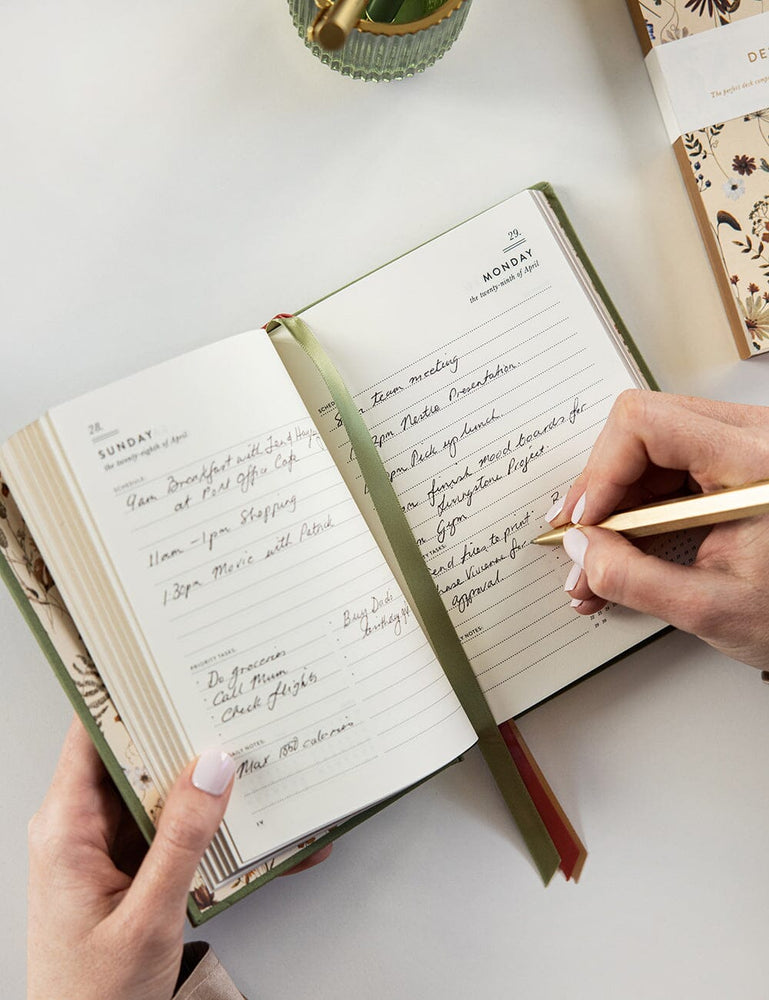 28.
SUNDAY
the twenty-eighth of April
SCHEDULE:
9am Breakfast with Jen &
at Port Office Cafe
11am - 1pm Shopping
1:30pm Movie with Patrick
PRIORITY TASKS:
Do groceries
Call Mum
Check flights
Buy Dads
birthday gift
DAILY NOTES:
Max 1850 calories
29.
MONDAY
the twenty-ninth of April
SCHEDULE
am team meeting
pm Nestro Presentation.
pm Pick up lunch
finish mood boards for
Project.
Gym
TASKS:
files to print
Vivienne for
approval.
NOTES:
DE
The perfect desk